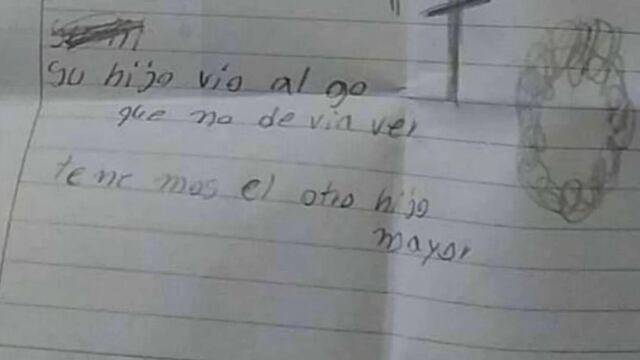 su hijo vio al go
que no de vin ver
tene mos el otro hijo
mayor